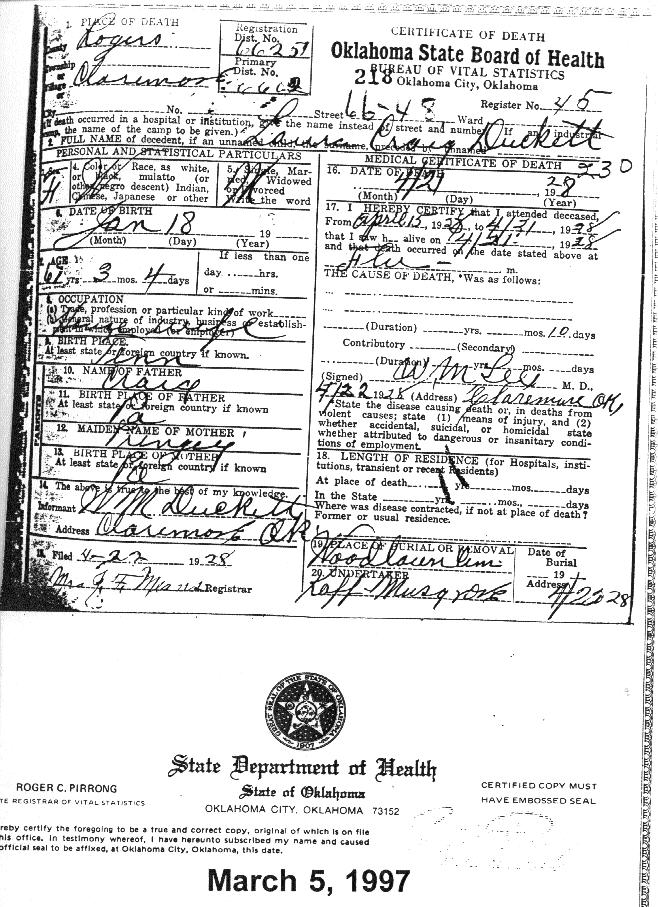 1. PLACE OF DEATH
County Rogers
Township or Village or Claremore
City
Registration Dist. No. 66251
Primary Dist. No.
CERTIFICATE OF DEATH
Oklahoma State Board of Health
BUREAU OF VITAL STATISTICS
218 Oklahoma City, Oklahoma
No. Street Ward Register No. 45
(If death occurred in a hospital or institution, give the name instead of street and number. If an industrial
camp, the name of the camp to be given.)
2. FULL NAME of decedent, if an unnamed Craig Duckett
PERSONAL AND STATISTICAL PARTICULARS
4. Color or Race, as white, or black, mulatto (or other negro descent) Indian, Chinese, Japanese or other
5. Single, Married, Widowed or Divorced Write the word
6. DATE OF BIRTH
Jan 18 19
(Month) (Day) (Year)
7. AGE
yrs. 3 mos. 4 days
If less than one
day hrs.
or mins.
8. OCCUPATION
(a) Trade, profession or particular kind of work
(b) General nature of industry, business or establishment in which employed (or employer)
9. BIRTH PLACE
At least state or foreign country if known.
10. NAME OF FATHER
Craig
11. BIRTH PLACE OF FATHER
At least state or foreign country if known
12. MAIDEN NAME OF MOTHER
13. BIRTH PLACE OF MOTHER
At least state or foreign country if known
14. The above is true to the best of my knowledge.
Informant W M Duckett
Address Claremore Ok
15. Filed 4-22 1928
Registrar
MEDICAL CERTIFICATE OF DEATH 230
16. DATE OF DEATH
4/21 1928
(Month) (Day) (Year)
17. I HEREBY CERTIFY that I attended deceased,
From April 15, 1928, to 4/21, 1928
that I saw h alive on 4/21, 1928
and that death occurred on the date stated above at
m.
THE CAUSE OF DEATH, *Was as follows:
Flu
(Duration) yrs. mos. 10 days
Contributory (Secondary)
(Duration) yrs. mos. days
(Signed) W M Lee M. D.,
4/22 1928 (Address) Claremore OK
*State the disease causing death or, in deaths from
violent causes; state (1) means of injury, and (2)
whether accidental, suicidal, or homicidal state
whether attributed to dangerous or insanitary condi-
tions of employment.
18. LENGTH OF RESIDENCE (for Hospitals, insti-
tutions, transient or recent Residents)
At place of death yrs. mos. days
In the State yrs. mos., days
Where was disease contracted, if not at place of death?
Former or usual residence.
19. PLACE OF BURIAL OR REMOVAL
Woodlawn Cem
Date of Burial
19
20. UNDERTAKER
Musgrove
Address
ROGER C. PIRRONG
TE REGISTRAR OF VITAL STATISTICS
GREAT SEAL OF THE STATE OF OKLAHOMA
1907
State Department of Health
State of Oklahoma
OKLAHOMA CITY, OKLAHOMA 73152
CERTIFIED COPY MUST
HAVE EMBOSSED SEAL
reby certify the foregoing to be a true and correct copy, original of which is on file
his office. In testimony whereof, I have hereunto subscribed my name and caused
official seal to be affixed, at Oklahoma City, Oklahoma, this date.
March 5, 1997